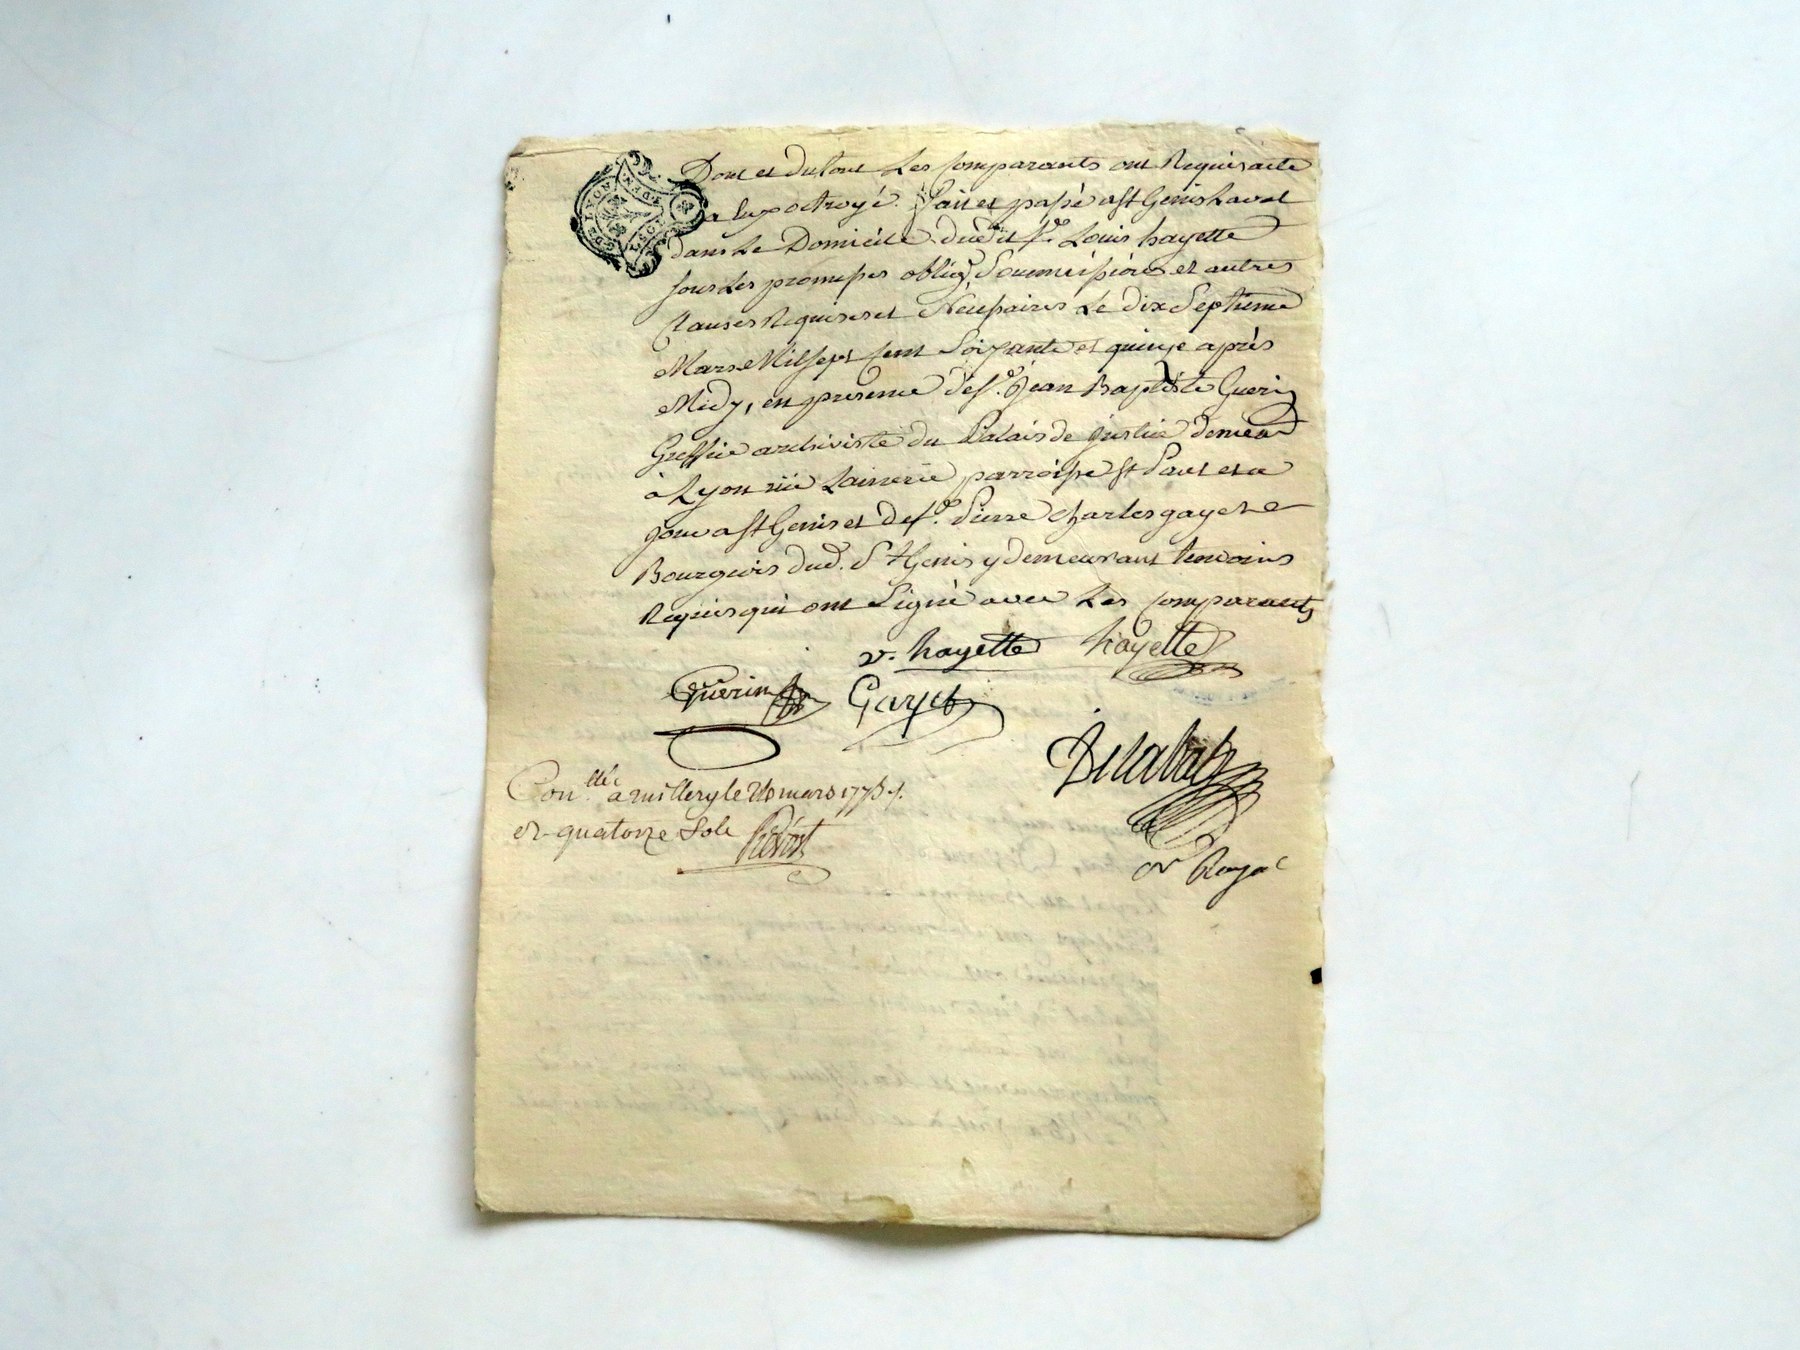 Dont et du tout les Comparants ont Requis acte
a Eux octroyé. Fait et passé a St Genis Laval
dans le Domicile dudit Sr. Louis hayette
sous les promesses oblig. Soumissions et autres
Clauses Requises et Nécessaires le dix Septieme
Mars Mil sept Cent Soixante et quinze après
Midy, en presence de Sr. Jean Baptiste Guerin
Greffier archiviste du Palais de justice demeur
à Lyon rüe Lainerie parroisse St Paul et a
St Genis et de Sr. Pierre Charles gayet
Bourgeois dud. St Genis y demeurant temoins
Requis qui ont Signé avec Les Comparants
v. hayette hayette
Guerin Gayet
Delabat
Con.llé a millery le mars 1775
quatorze Sols Prévost
nre Royal
DE LYON
GEN